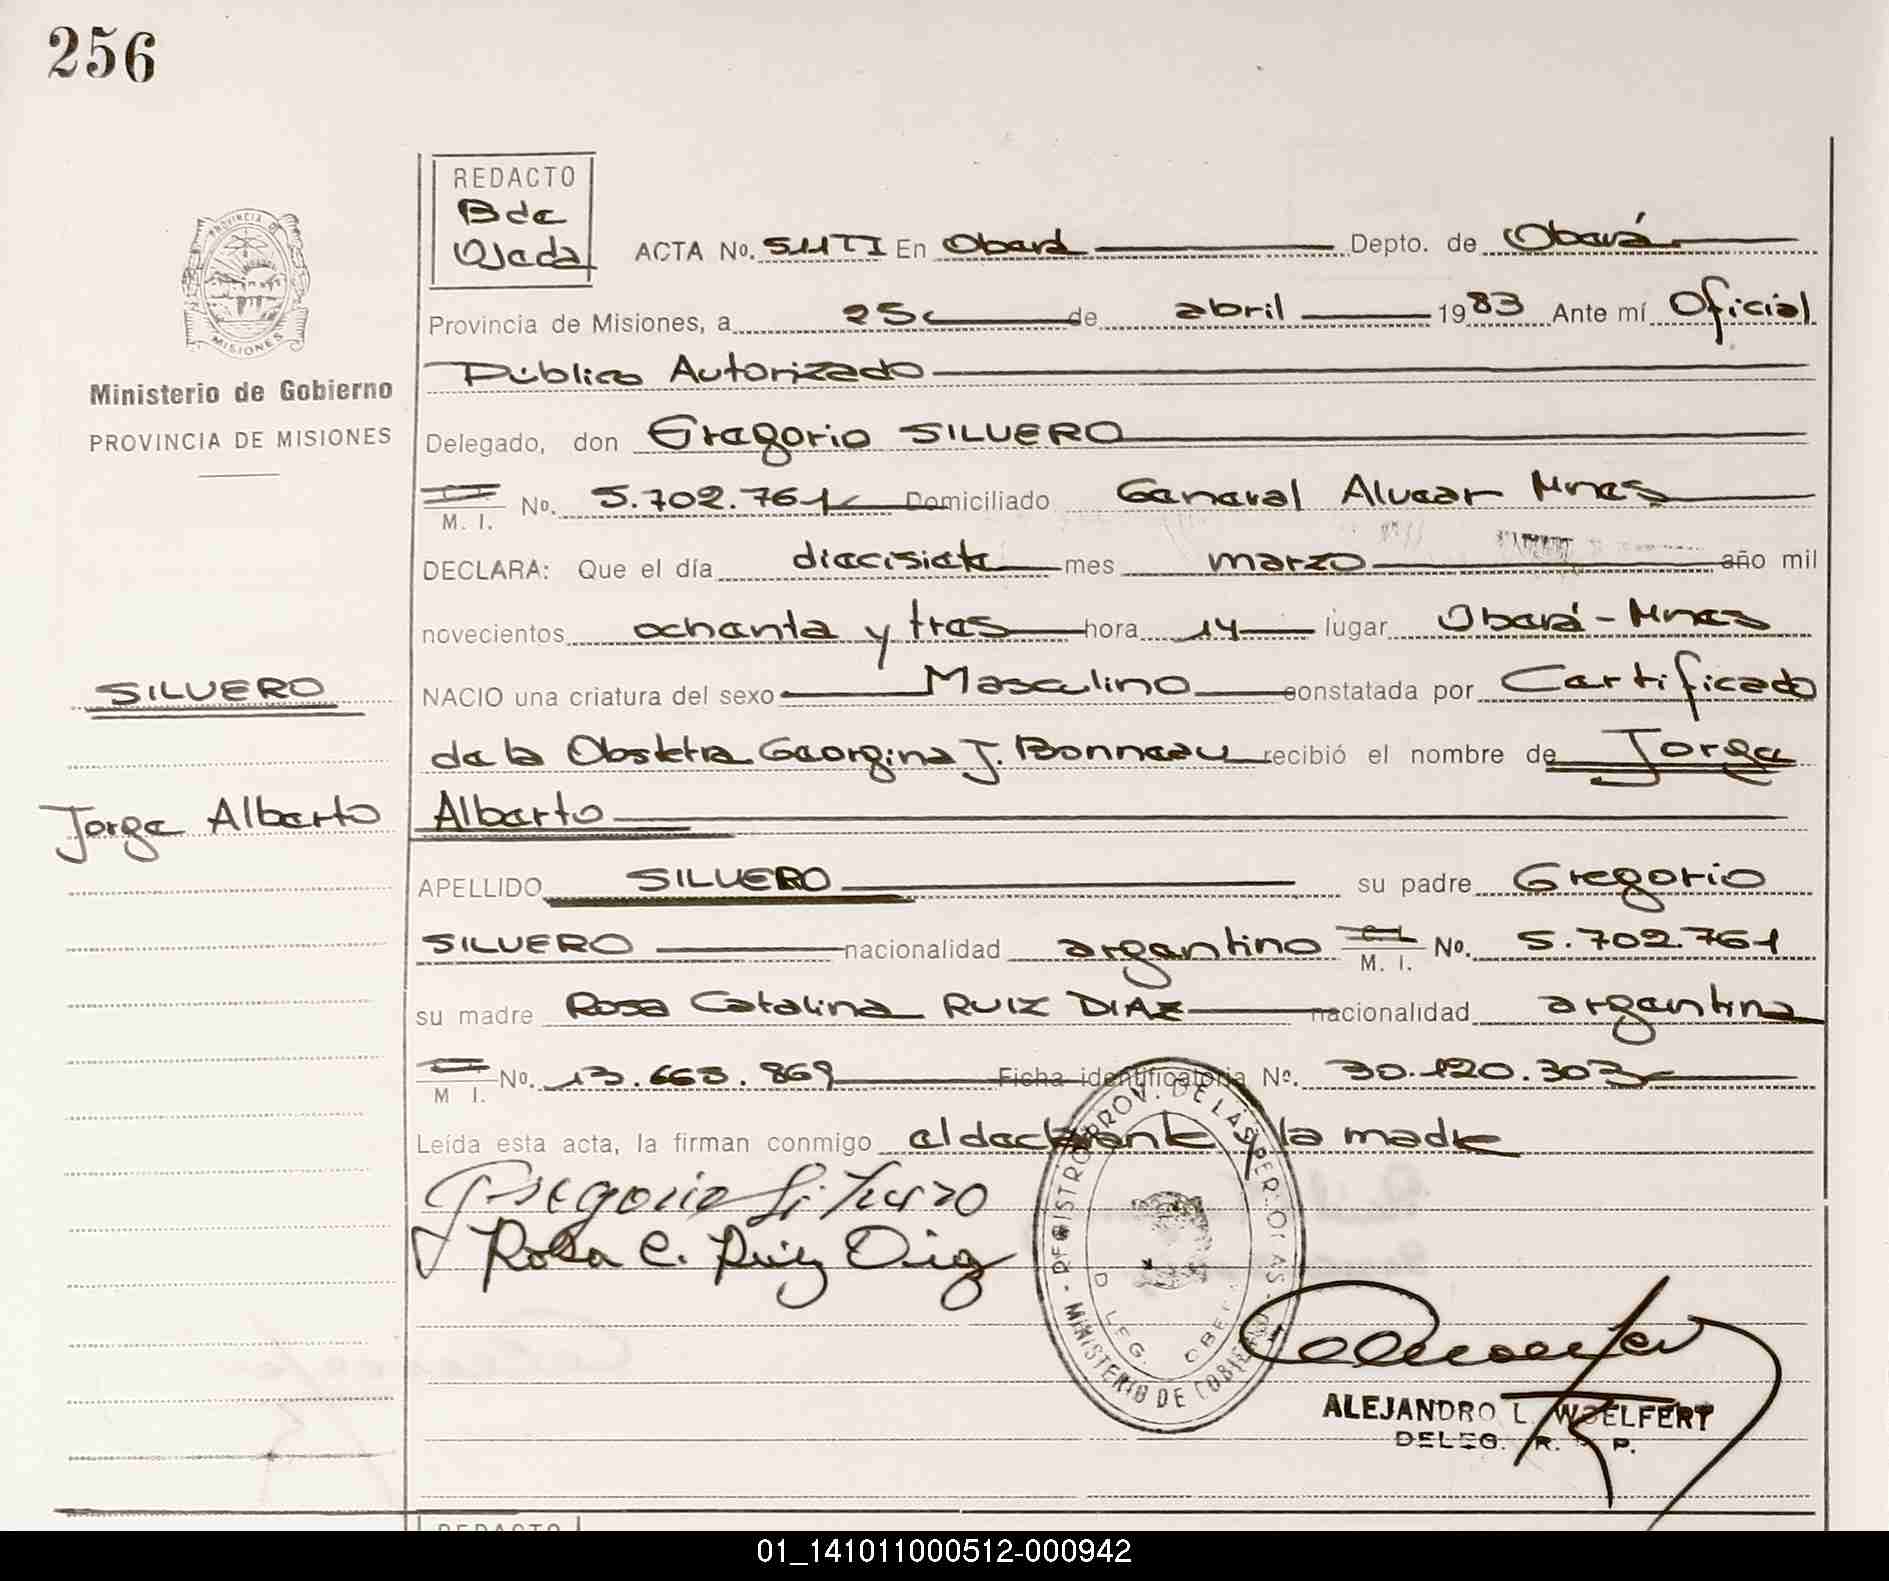 256
REDACTO
Bde
Ojeda
PROVINCIA DE
MISIONES
Ministerio de Gobierno
PROVINCIA DE MISIONES
ACTA No. 511TI En Oberá Depto. de Oberá
Provincia de Misiones, a 25 de abril 1983 Ante mí Oficial
Público Autorizado
Delegado, don Gregorio SILVERO
M. I. No. 5.702.761 Domiciliado General Alvear Mnes
DECLARA: Que el día diecisiete mes marzo año mil
novecientos ochenta y tres hora 14 lugar Oberá - Mnes
SILVERO
NACIO una criatura del sexo Masculino constatada por Certificado
de la Obstetra Georgina J. Bonneau recibió el nombre de Jorge
Jorge Alberto
Alberto
APELLIDO SILVERO su padre Gregorio
SILVERO nacionalidad argentino M. I. No. 5.702.761
su madre Rosa Catalina RUIZ DIAZ nacionalidad argentina
M I. No. 13.663.869 Ficha identificatoria No. 30.120.303
Leída esta acta, la firman conmigo el declarante y la madre
Gregorio Silvero
Rosa C. Ruiz Diaz
REGISTRO PROV. DE LAS PERSONAS - MINISTERIO DE GOBIERNO -
DELEG. OBERA
ALEJANDRO L. WOELFERT
DELEG. R. P.
REDACTO
01_141011000512-000942